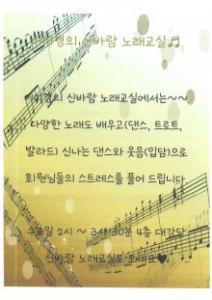 신바람 노래교실 ♬
신바람 노래교실에서는~~
다양한 노래도 배우고(댄스, 트로트,
발라드) 신나는 댄스와 웃음(입담)으로
회원님들의 스트레스를 풀어 드립니다
수요일 2시 ~ 3시 30분 4층 대강당
신바람 노래교실로 오세요♥